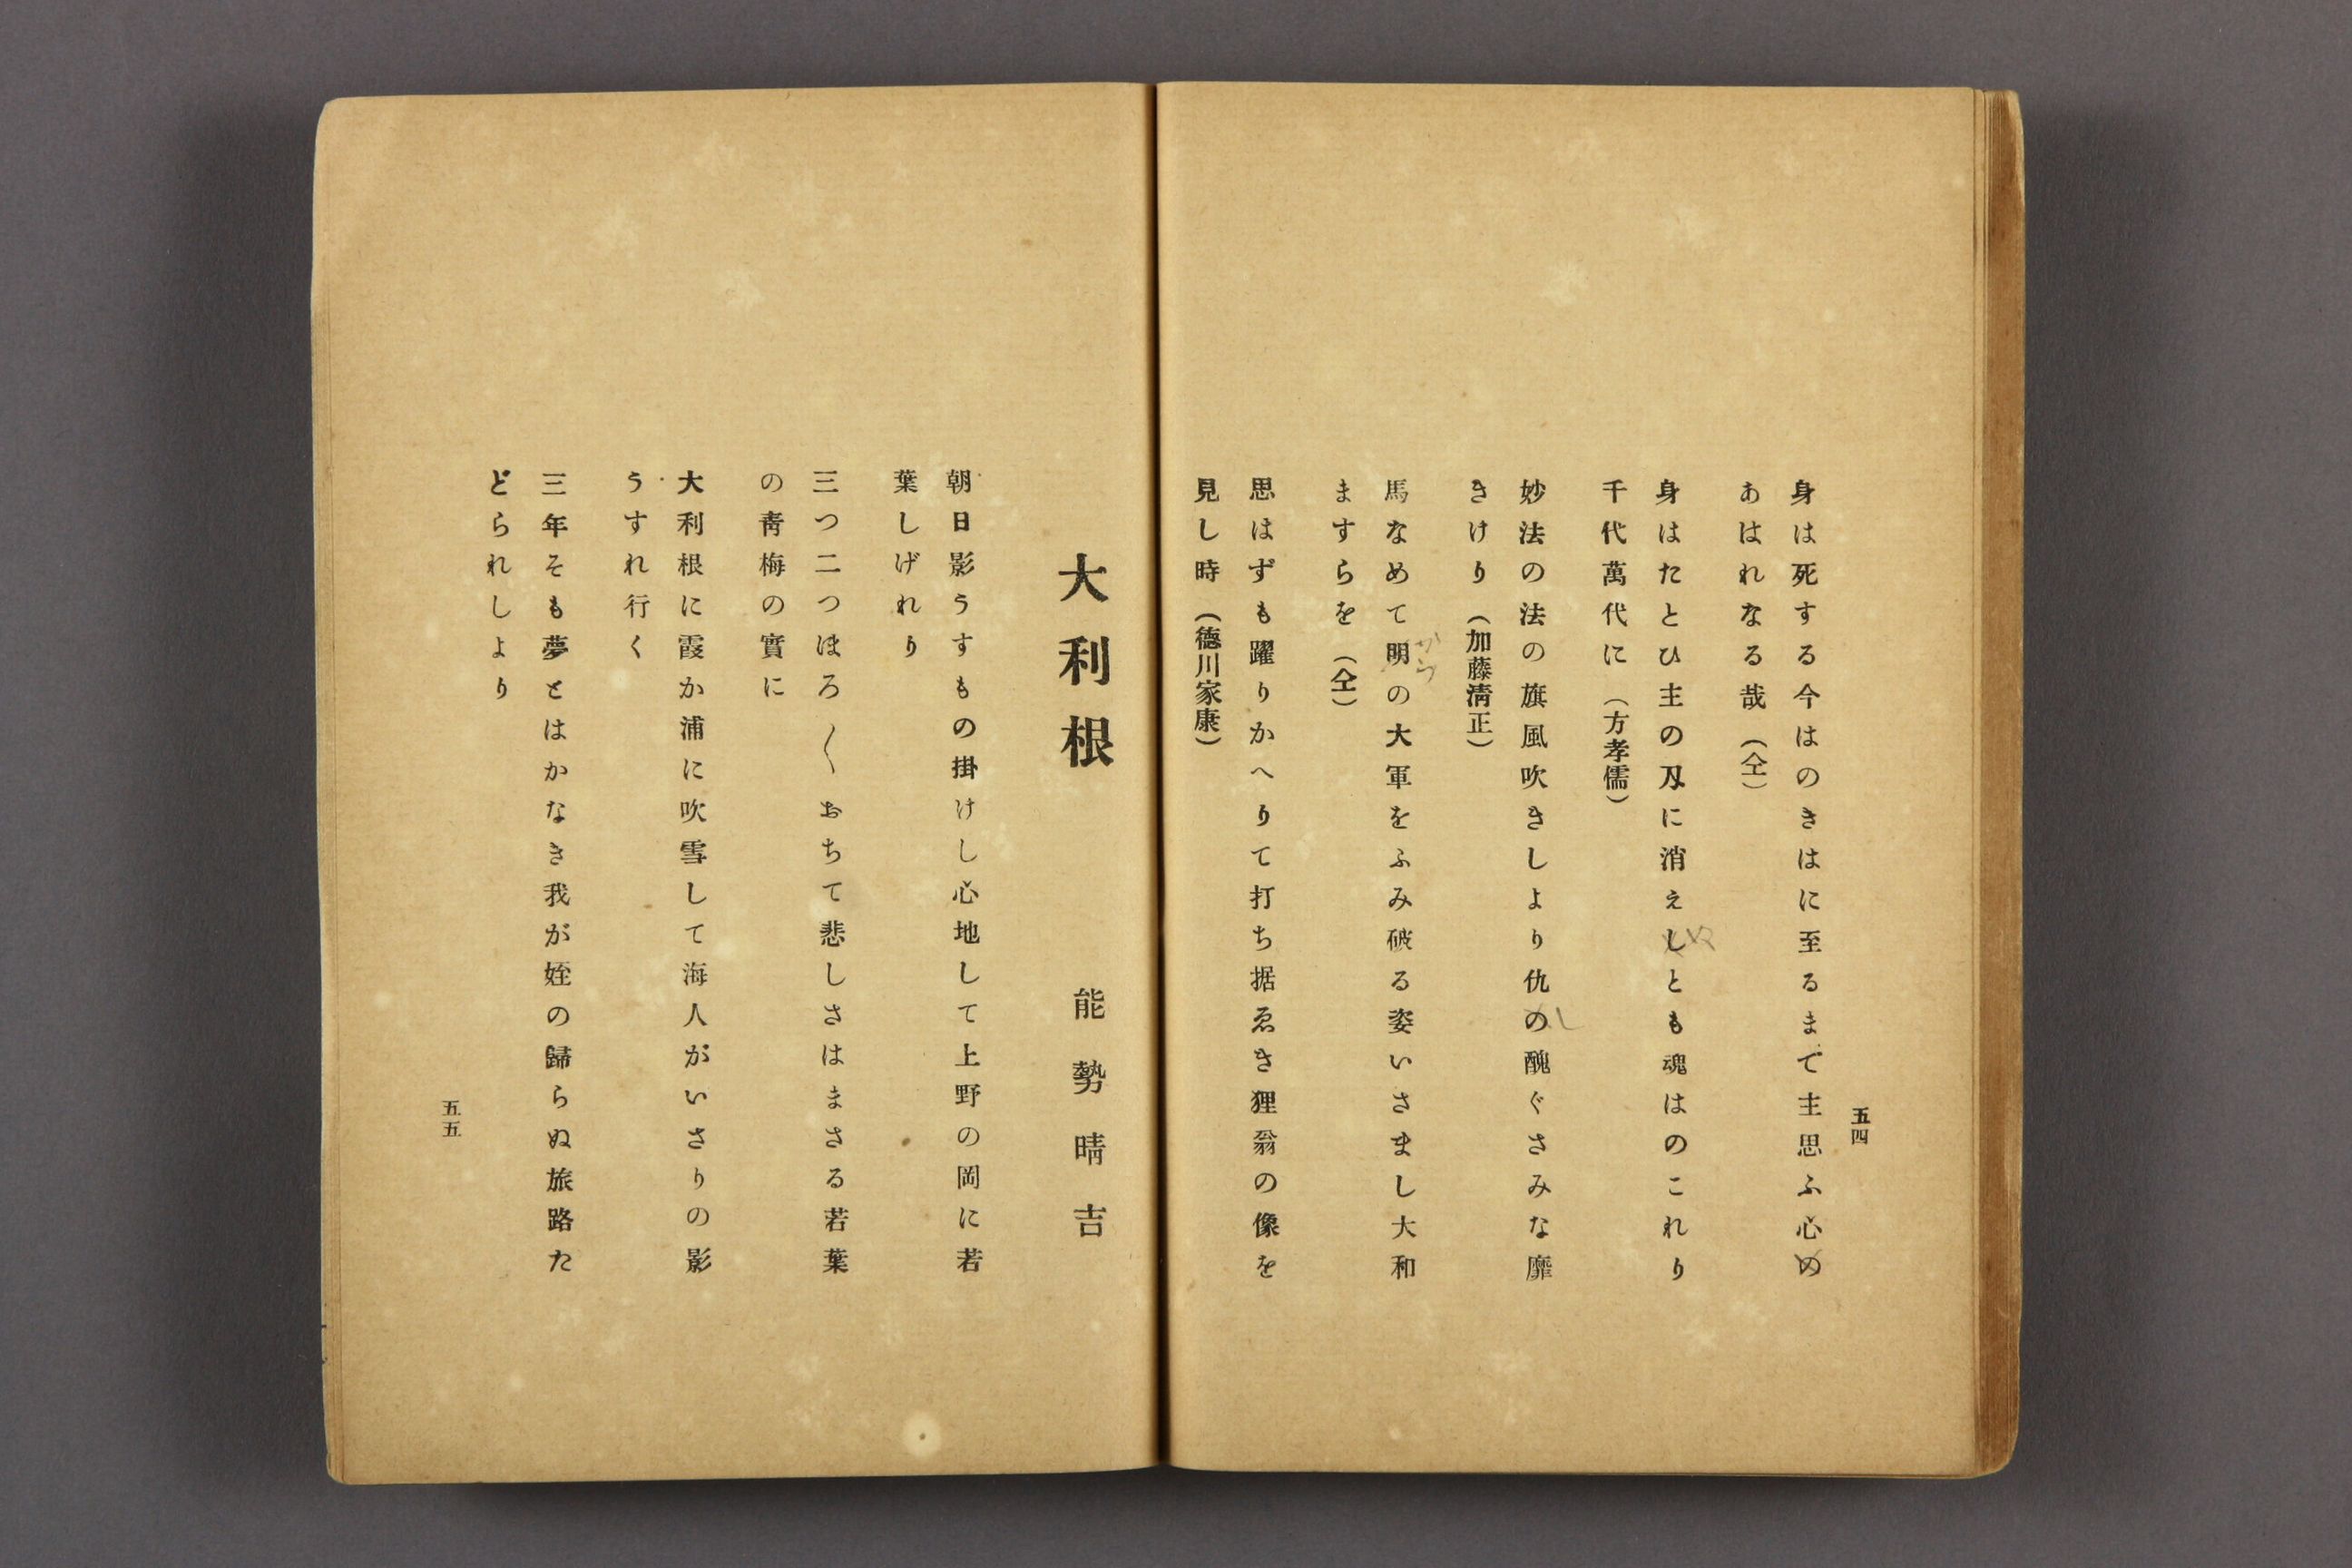 五四
身は死する今はのきはに至るまで主思ふ心の
あはれなる哉（仝）
身はたとひ主の刄に消えしとも魂はのこれり
千代萬代に（方孝儒）
妙法の法の旗風吹きしより仇の醜ぐさみな靡
きけり（加藤淸正）
馬なめて明の大軍をふみ破る姿いさまし大和
ますらを（仝）
思はずも躍りかへりて打ち据ゑき狸翁の像を
見し時（德川家康）
大利根　能勢晴吉
朝日影うすもの掛けし心地して上野の岡に若
葉しげれり
三つ二つほろ〱おちて悲しさはまさる若葉
の靑梅の實に
大利根に霞か浦に吹雪して海人がいさりの影
うすれ行く
三年そも夢とはかなき我が姪の歸らぬ旅路た
どられしより
五五